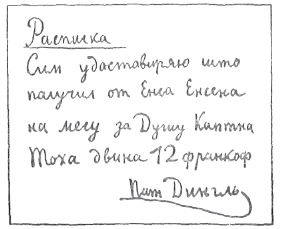 Расписка
Сим удаставиряю што
палучил от Енса Енсена
на месу за Душу Каптна
Тоха двина 12 франкоф
Пит Дингль